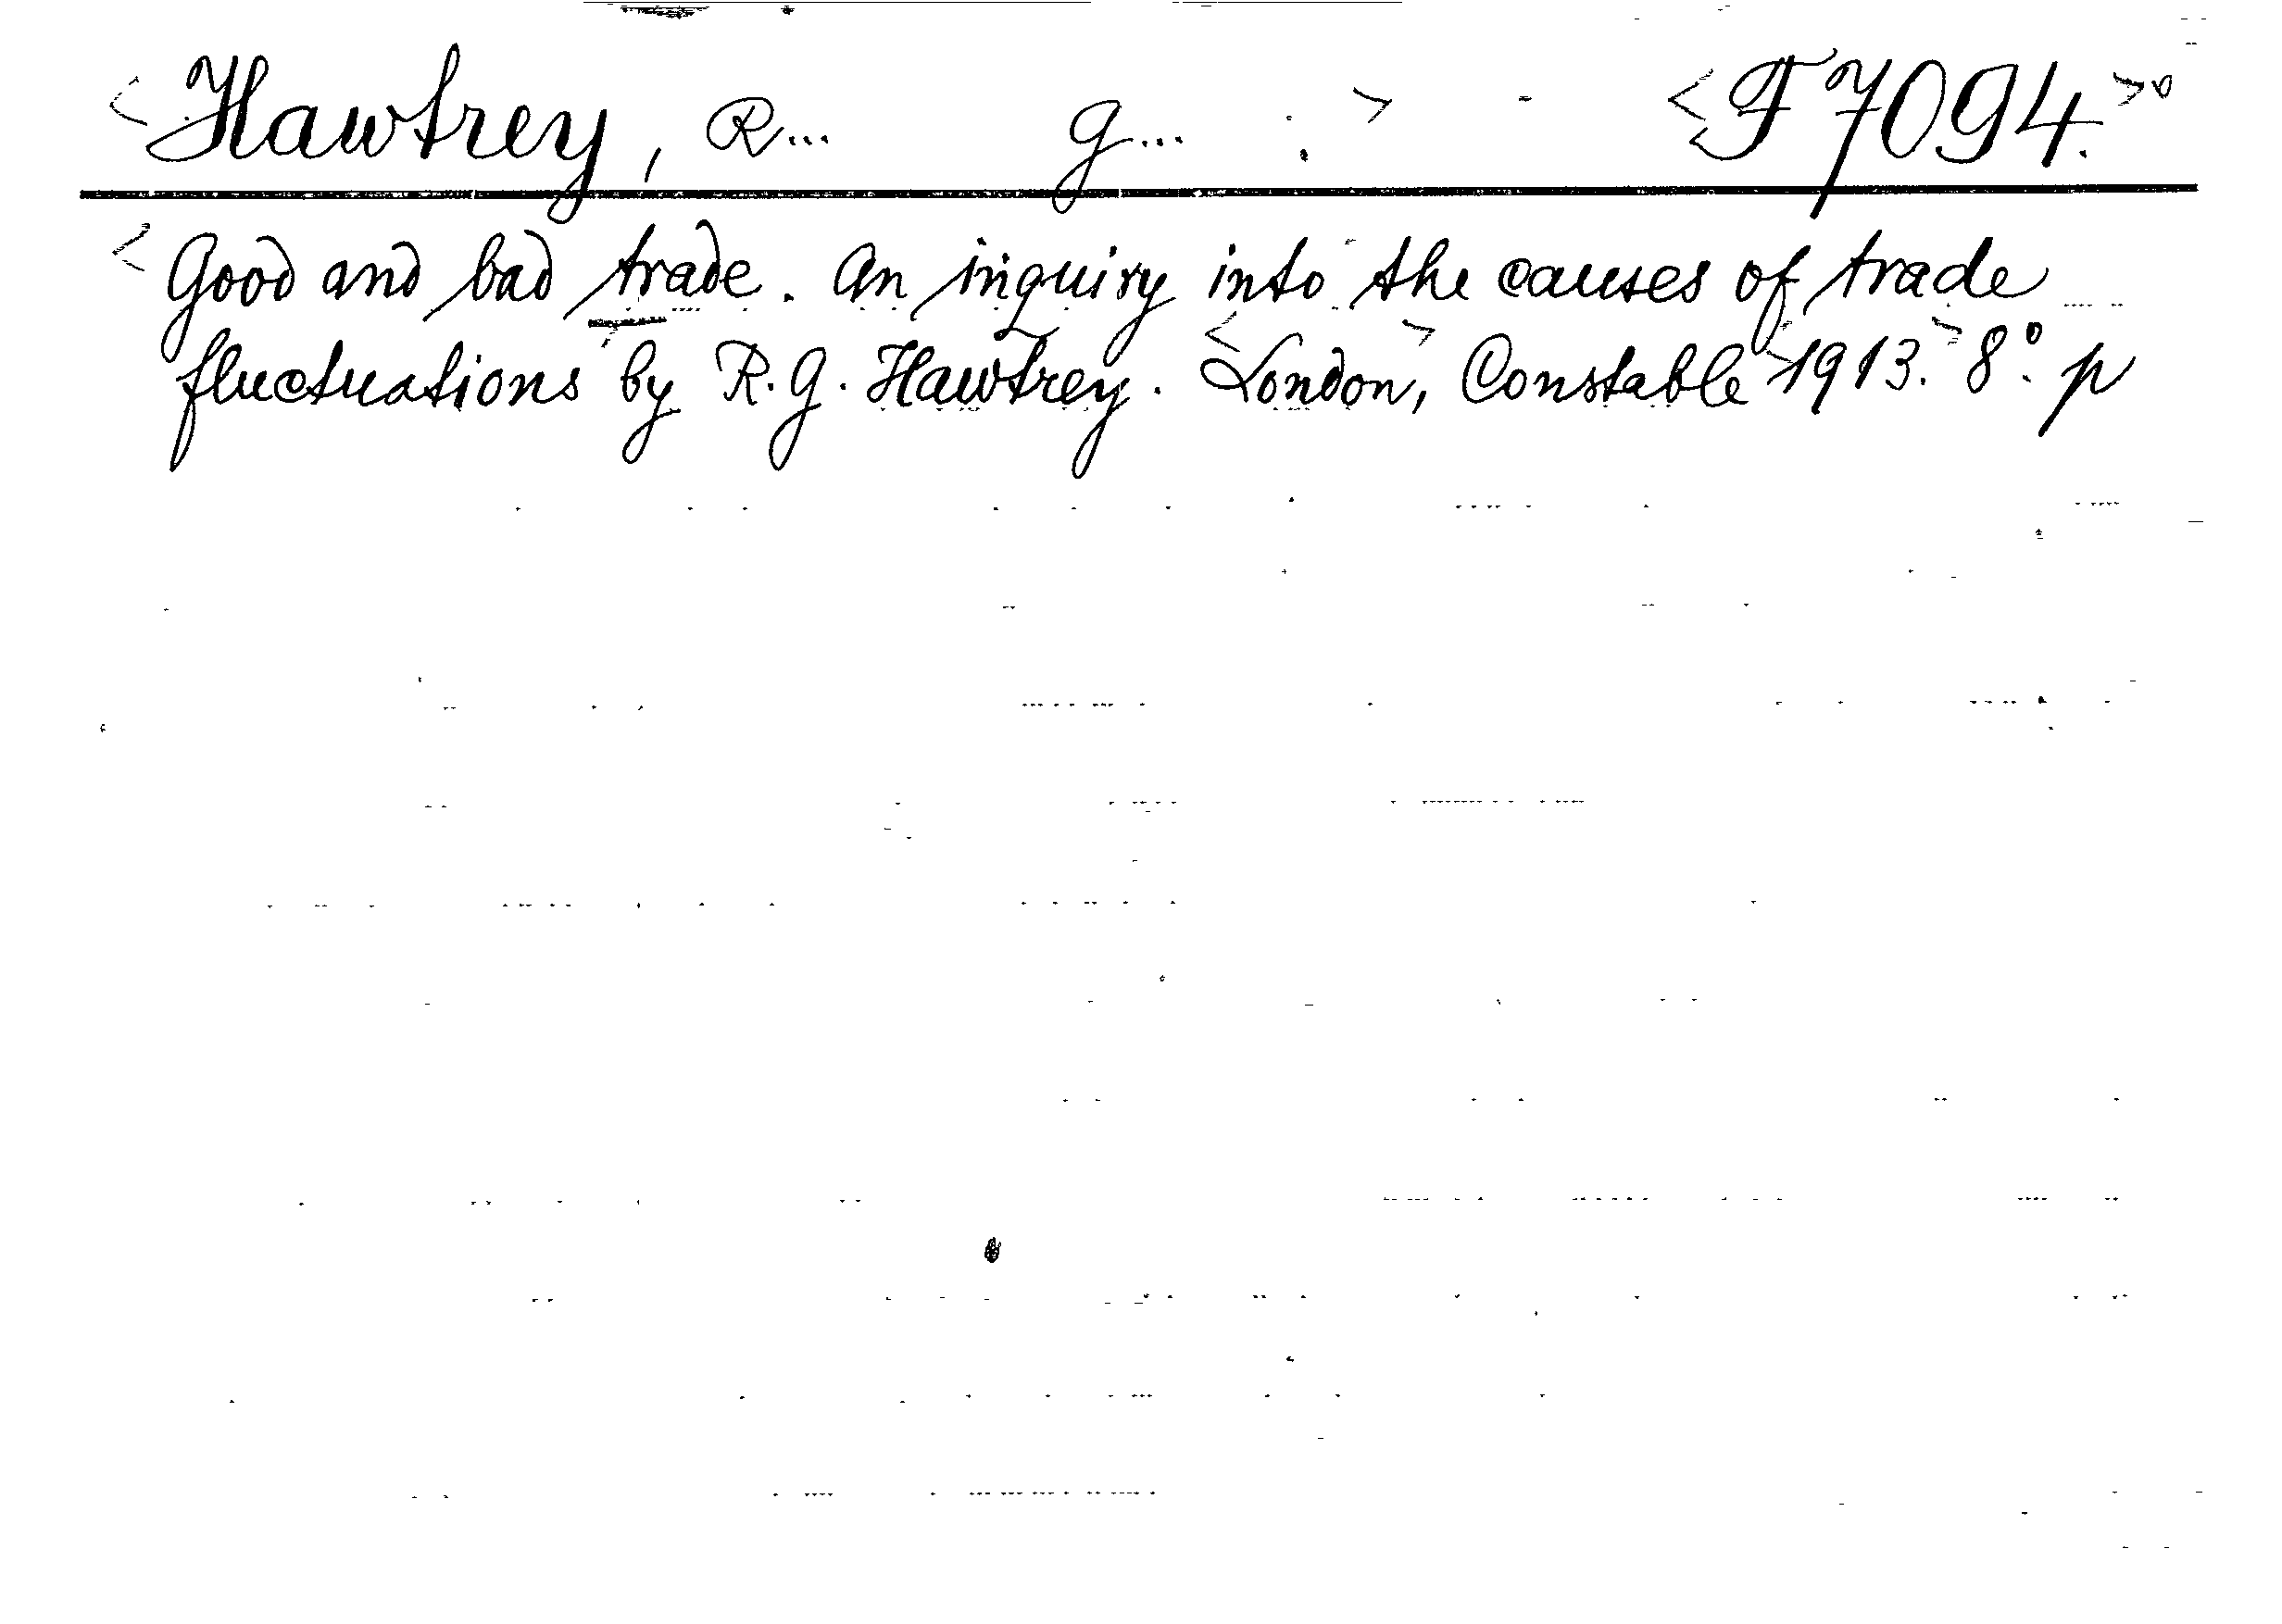 <Hawtrey, R... G... .> <F7094.>°
<Good and bad trade. An inquiry into the causes of trade
fluctuations> by R.G. Hawtrey. <London>, Constable <1913.> 8°. p